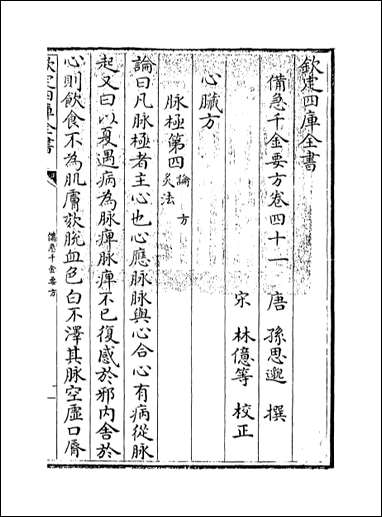 欽定四庫全書
備急千金要方卷四十一
唐 孫思邈 撰
宋 林億等 校正
心臟方
脉極第四論 方 灸法
論曰凡脉極者主心也心應脉脉與心合心有病從脉
起又曰以夏遇病為脉痺脉痺不已復感於邪内舎於
心則飲食不為肌膚欬脱血色白不澤其脉空虚口脣
欽定四庫全書
備急千金要方
一